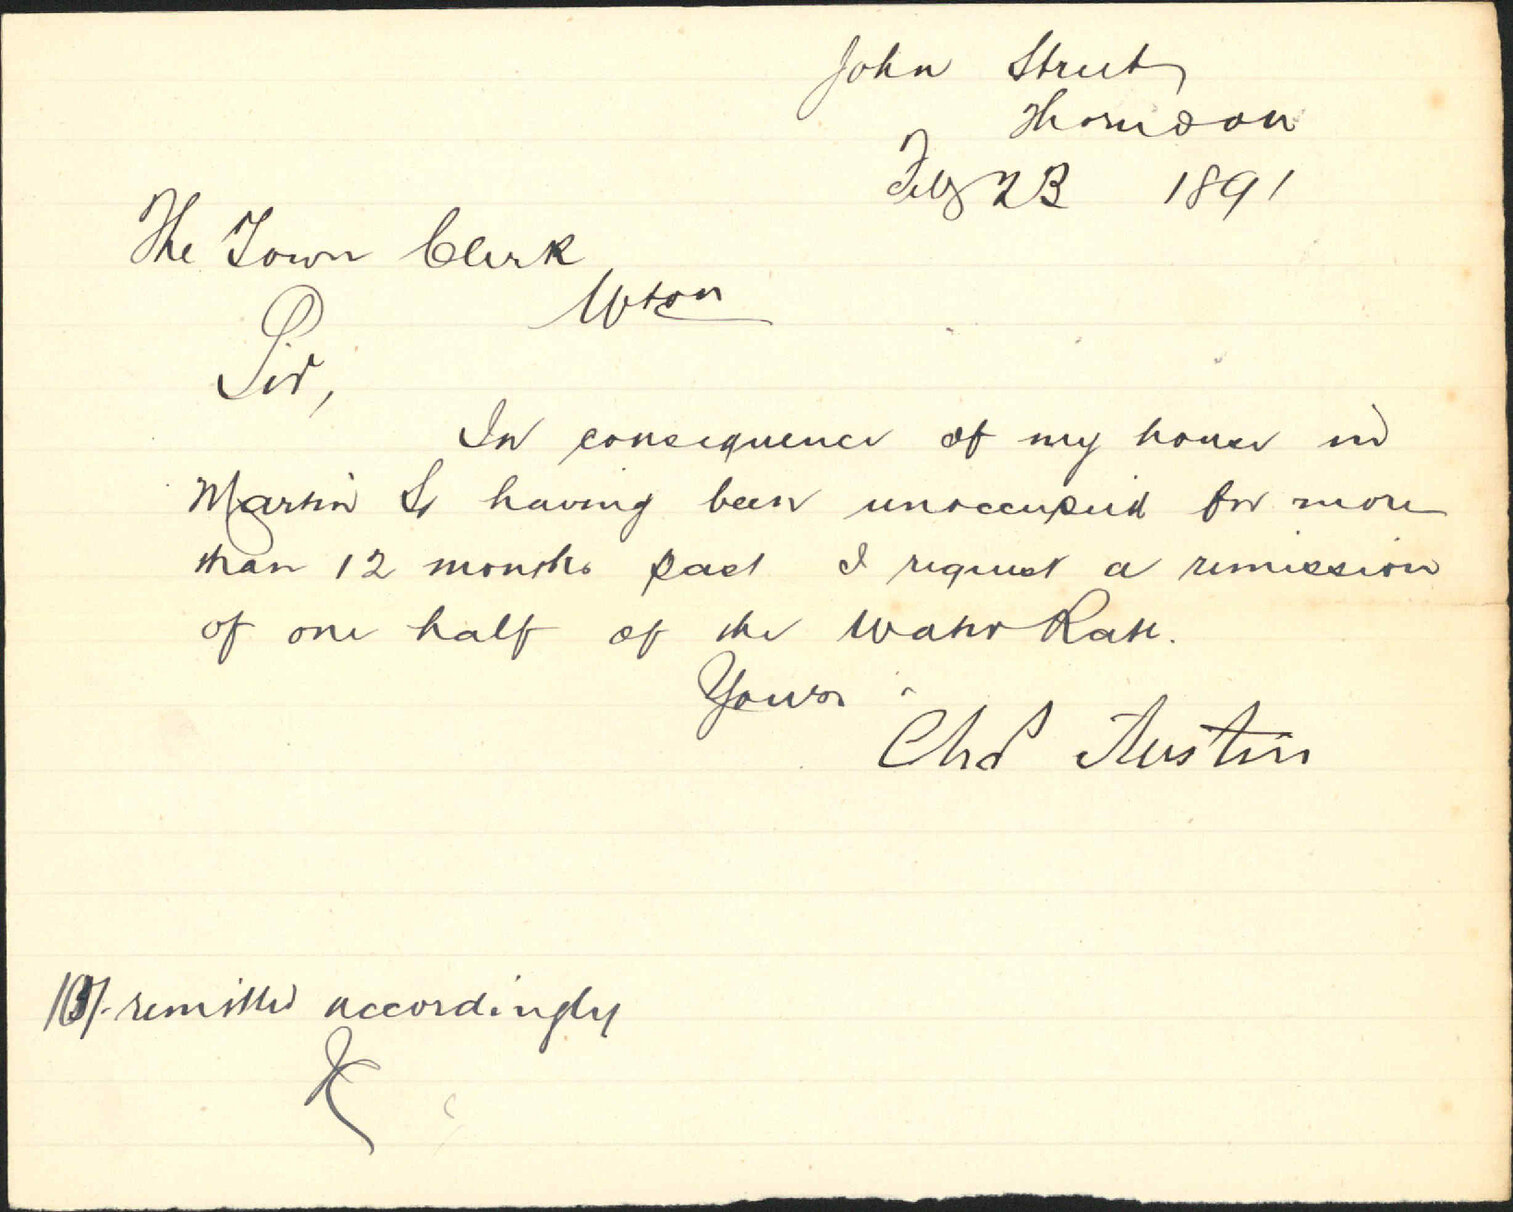 John Street
Thorndon
Feby 23 1891
The Town Clerk
Wton
Sir,
In consequence of my house in
Martin St having been unoccupied for more
than 12 months past I request a remission
of one half of the Water Rate.
Yours
Chas Austin
remitted accordingly